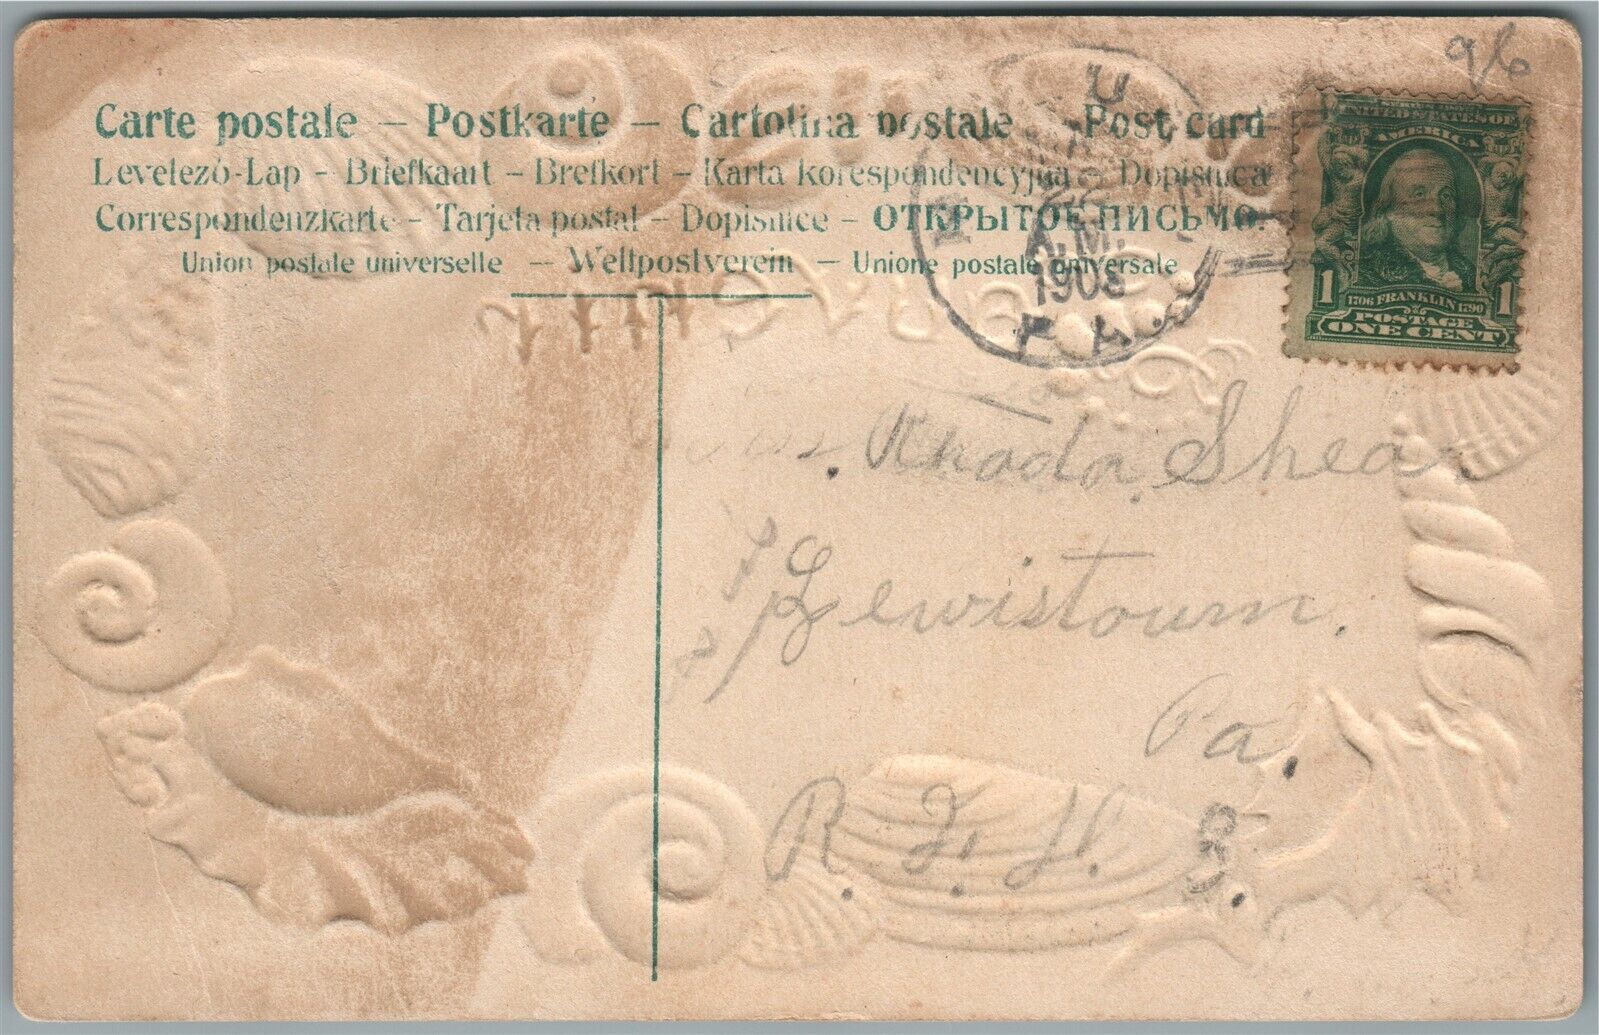 96
Carte postale – Postkarte – Cartolina postale – Post card
Levelezö-Lap – Briefkaart – Brefkort – Karta korespondencyjna – Dopisnica
Correspondenzkarte – Tarjeta postal – Dopisnice – ОТКРЫТОЕ ПИСЬМО.
Union postale universelle – Weltpostverein – Unione postale universale
A.M.
1908
PA.
SERIES 1902
UNITED STATES OF
AMERICA
1 1706 FRANKLIN 1790 1
POSTAGE
ONE CENT
Rhoda Shear
Lewistown.
Pa.
R. F. D. 3.